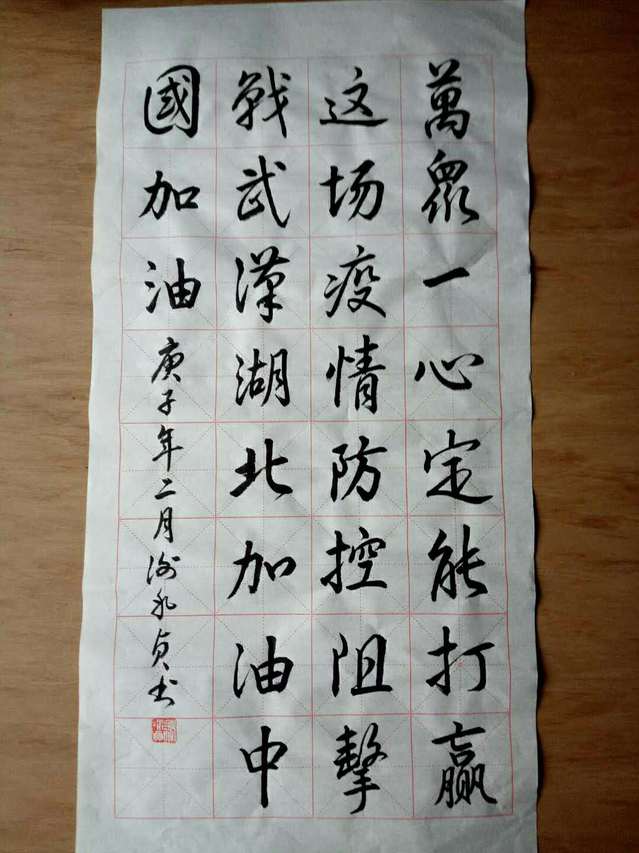 萬眾一心定能打赢
这场疫情防控阻擊
戰武漢湖北加油中
國加油
庚子年二月谢永贞书